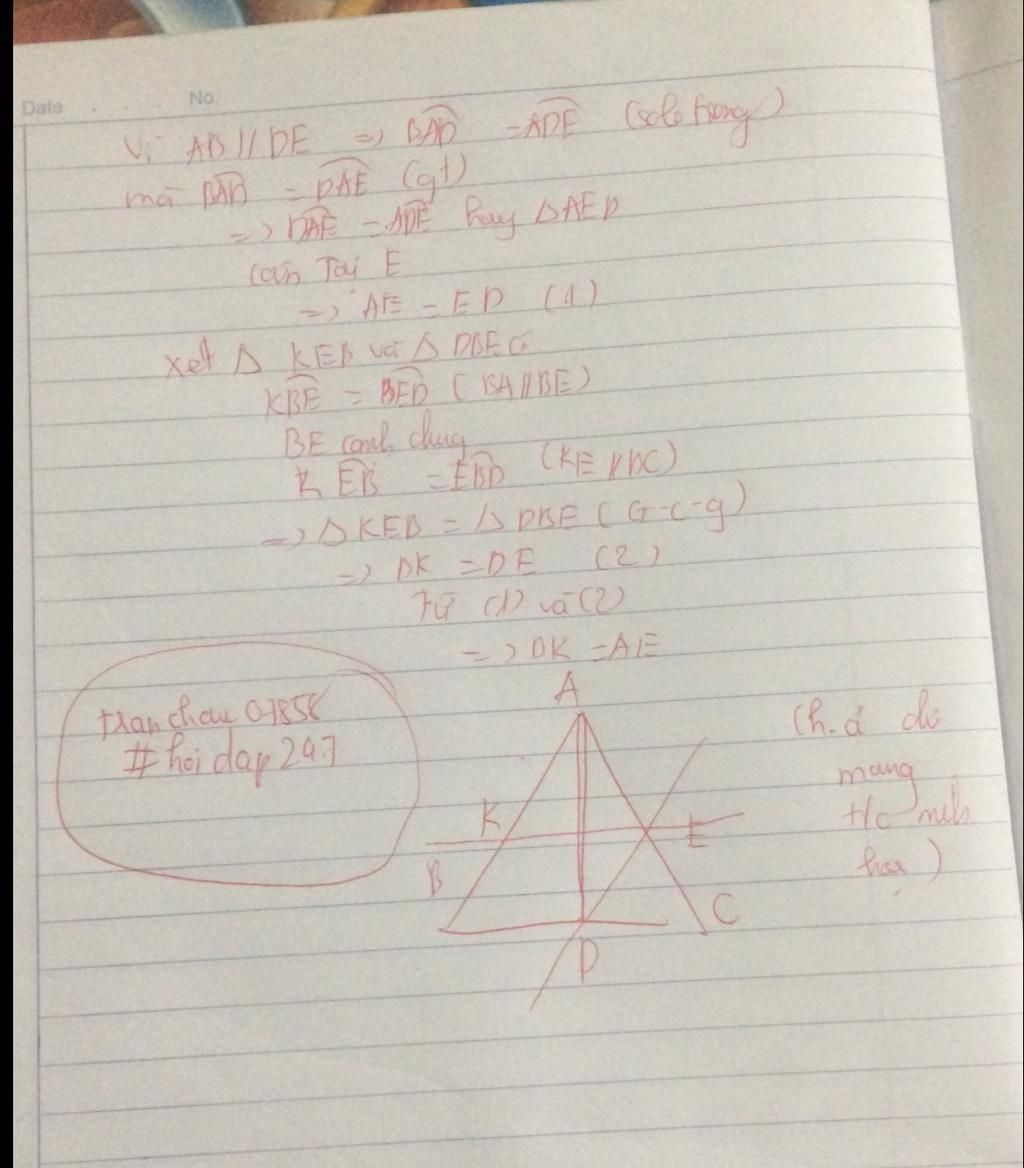 Date No.
Vì AB // DE => BAD = ADE (sole trong)
mà BAD = DAE (gt)
=> DAE = ADE hay △AED
cân Tại E
=> AE = ED (1)
xét △ KEB và △ DBE có
KBE = BED (BA//BE)
BE cạnh chug
KEB = EBD (KE//BC)
=> △KEB = △DBE (G-c-g)
=> BK = DE (2)
Từ (1) và (2)
=> BK = AE
tran chau 07858
# hoi dap 247
A
(h.á chỉ
mang
t/c minh
họa)
K
E
B
C
D